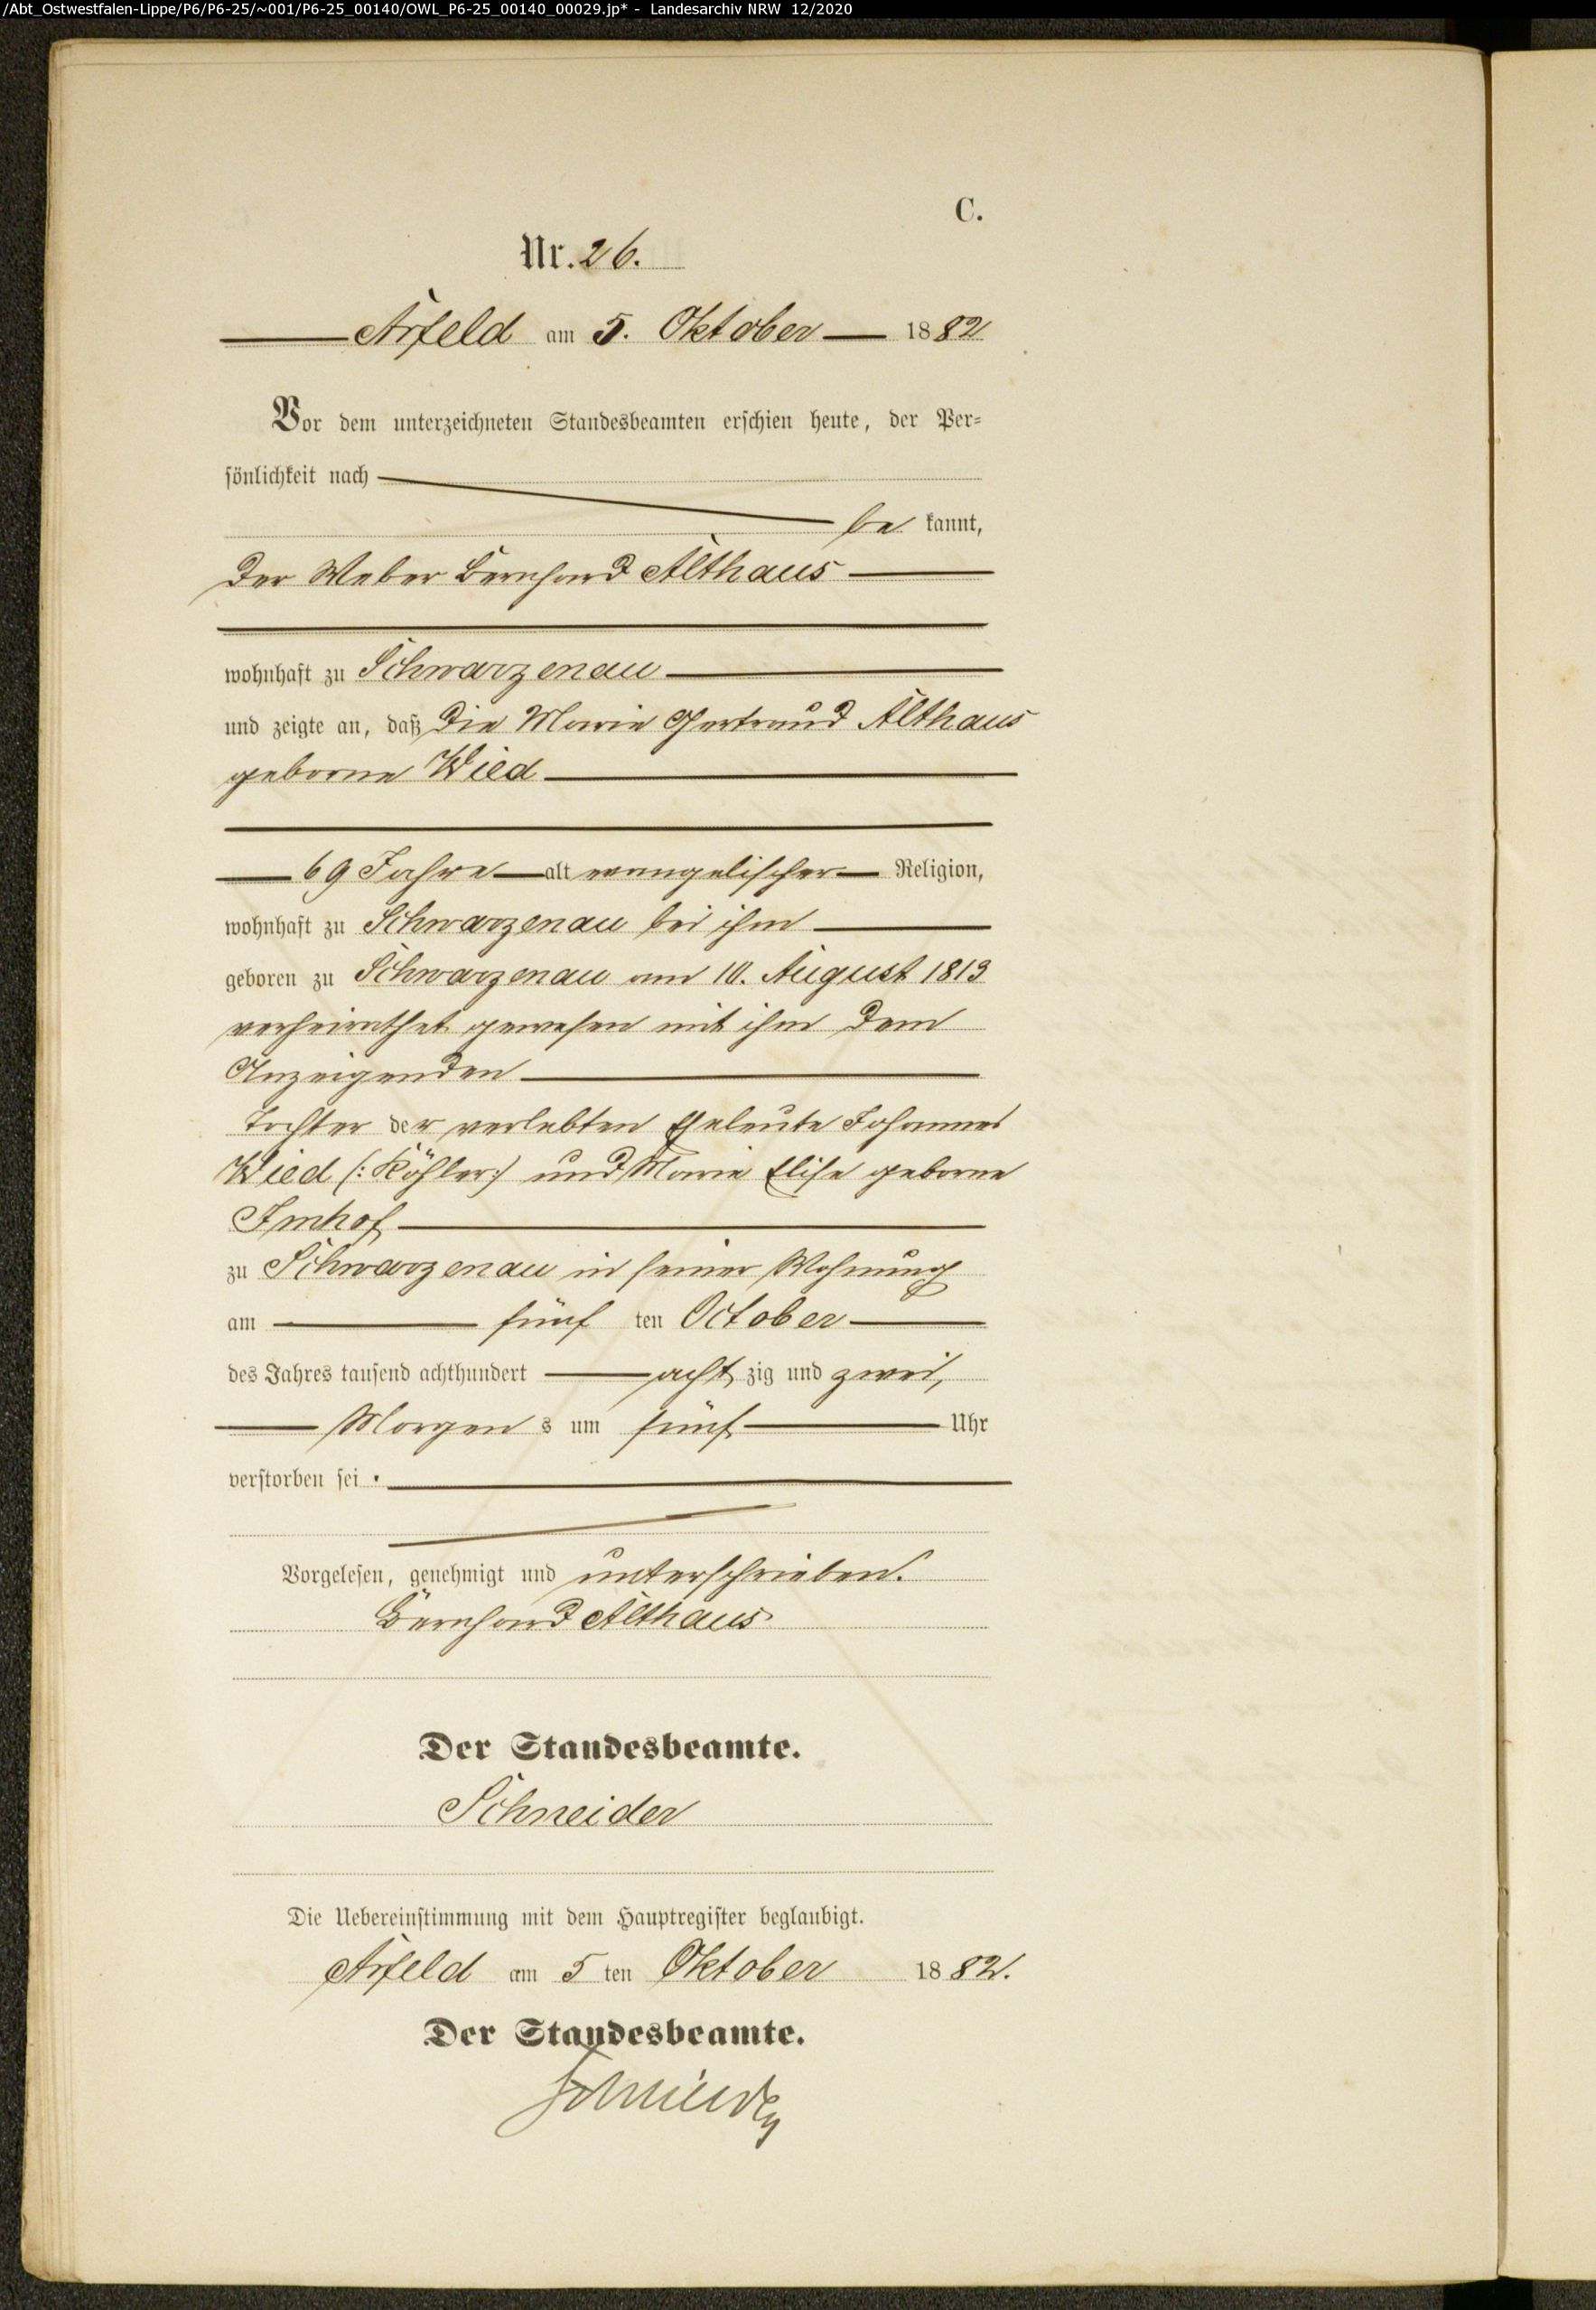 /Abt_Ostwestfalen-Lippe/P6/P6-25/~001/P6-25_00140/OWL_P6-25_00140_00029.jp* - Landesarchiv NRW 12/2020
C.
Nr. 26.
Arfeld am 5. Oktober 1882
Vor dem unterzeichneten Standesbeamten erschien heute, der Per-
sönlichkeit nach
be kannt,
der Weber Bernhard Althaus
wohnhaft zu Schwarzenau
und zeigte an, daß die Marie Gertraud Althaus
geborne Wied
69 Jahre alt evangelischer Religion,
wohnhaft zu Schwarzenau bei ihm
geboren zu Schwarzenau am 10. August 1813
verheirathet gewesen mit ihm dem
Anzeigenden
Tochter der verlebten Eheleute Johannes
Wied (: Köhler:) und Marie Elise geborne
Imhof
zu Schwarzenau in seiner Wohnung
am fünf ten October
des Jahres tausend achthundert acht zig und zwei,
Morgen s um fünf Uhr
verstorben sei.
Vorgelesen, genehmigt und unterschrieben.
Bernhard Althaus
Der Standesbeamte.
Schneider
Die Uebereinstimmung mit dem Hauptregister beglaubigt.
Arfeld am 5 ten Oktober 1882.
Der Standesbeamte.
Schneider